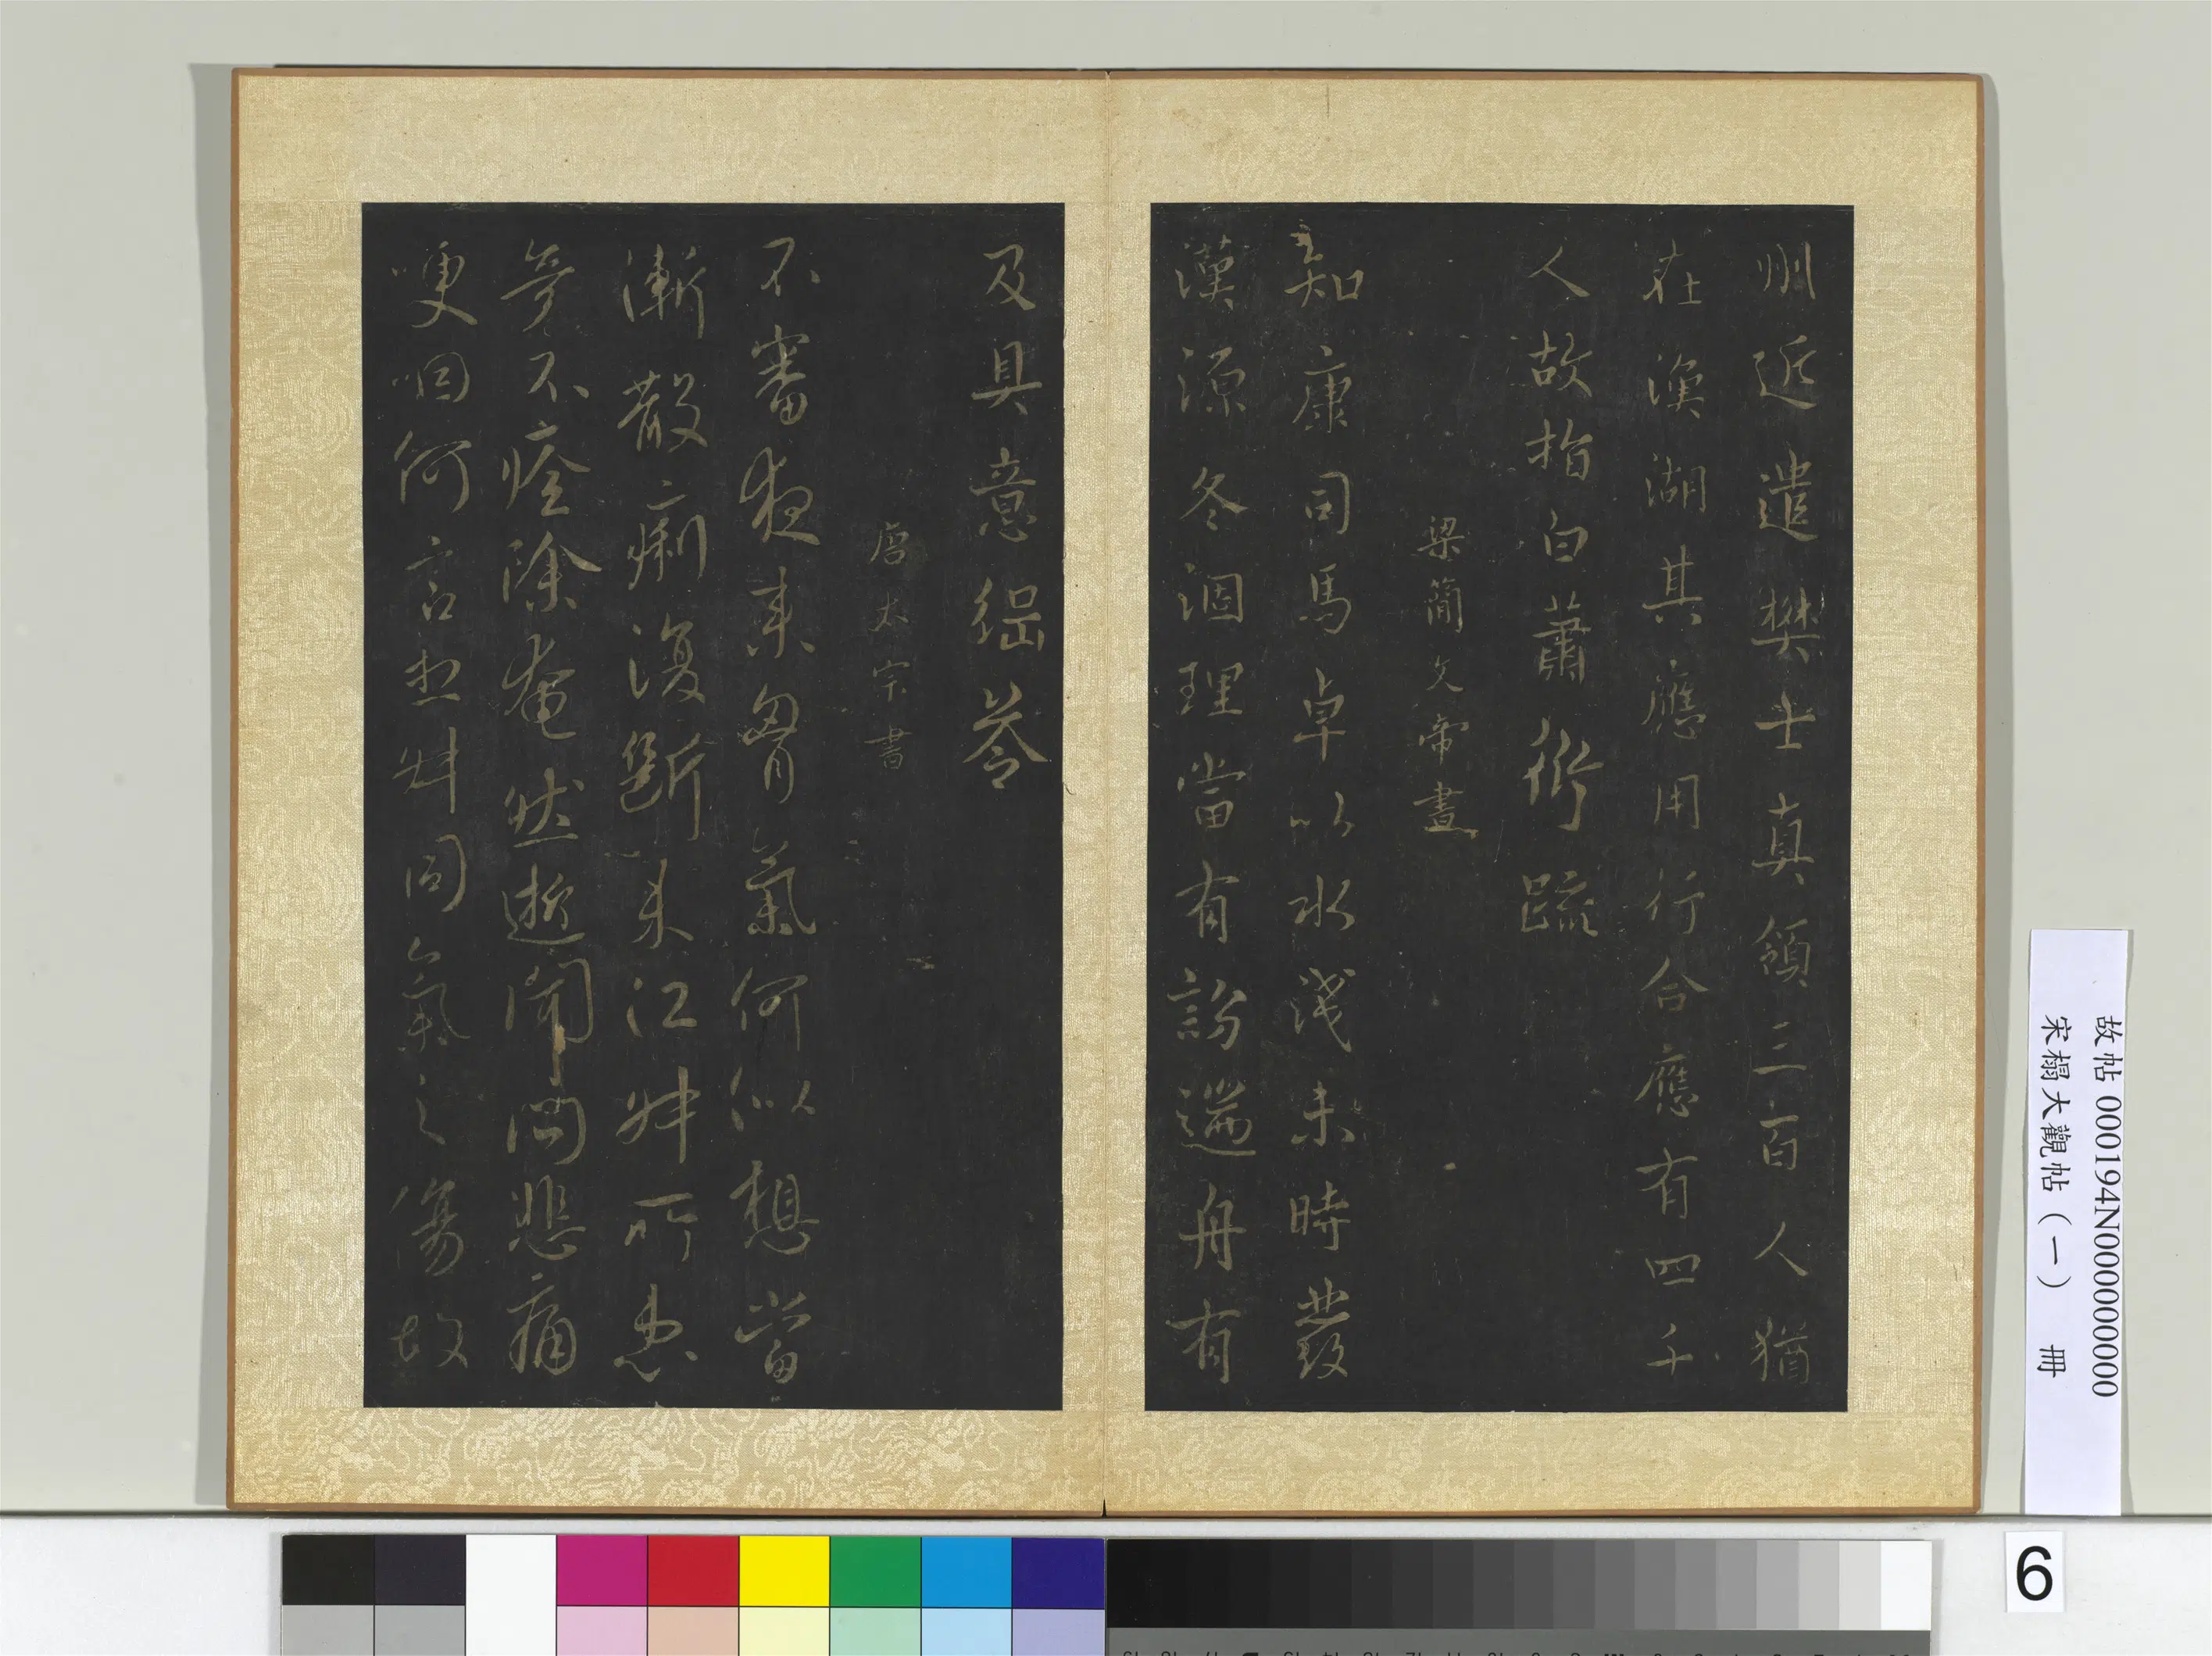 州近遣樊士真領三百人猶
在漢湖其應用行合應有四千
人故指白蕭衍疏
梁簡文帝書
知康司馬卓以水淺未時發
漢源冬涸理當有訪遄舟有
及具意綱答
唐太宗書
不審夜來胷氣何似想當
漸散痢復斷未江叔所患
竟不痊除奄然逝聞問悲痛
哽咽何言想叔同氣之傷故
故帖 000194N000000000
宋榻大觀帖(一) 冊
6